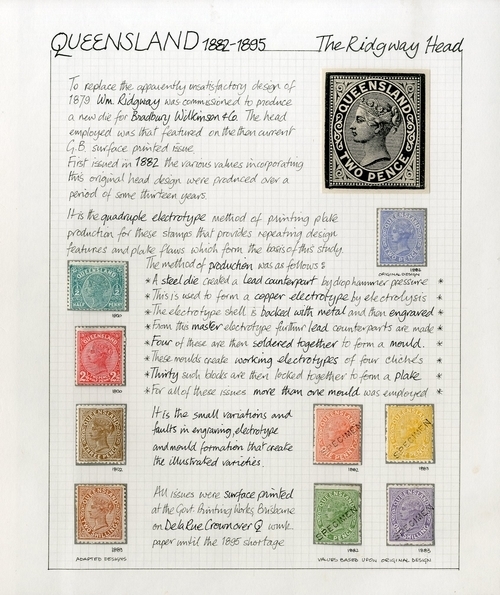 QUEENSLAND 1882-1895 The Ridgway Head
To replace the apparently unsatisfactory design of
1879 Wm. Ridgway was commissioned to produce
a new die for Bradbury Wilkinson & Co. The head
employed was that featured on the then current
G.B. surface printed issue.
First issued in 1882 the various values incorporating
this original head design were produced over a
period of some thirteen years.
QUEENSLAND
TWO PENCE
It is the quadruple electrotype method of printing plate
production for these stamps that provides repeating design
features and plate flaws which form the basis of this study.
ORIGINAL DESIGN
The method of production was as follows:
* A steel die created a lead counterpart by drop hammer pressure *
* This is used to form a copper electrotype by electrolysis *
* The electrotype shell is backed with metal and then engraved *
* From this master electrotype further lead counterparts are made *
* Four of these are then soldered together to form a mould. *
* These moulds create working electrotypes of four clichés *
* Thirty such blocks are then locked together to form a plate *
* For all of these issues more than one mould was employed *
QUEENSLAND
HALF PENNY
QUEENSLAND
It is the small variations and
faults in engraving, electrotype
and mould formation that create
the illustrated varieties.
SPECIMEN
SPECIMEN
All issues were surface printed
at the Govt. Printing Works, Brisbane
on De La Rue Crown over Q wmk.
paper until the 1895 shortage
SPECIMEN
SPECIMEN
ADAPTED DESIGNS
VALUES BASED UPON ORIGINAL DESIGN